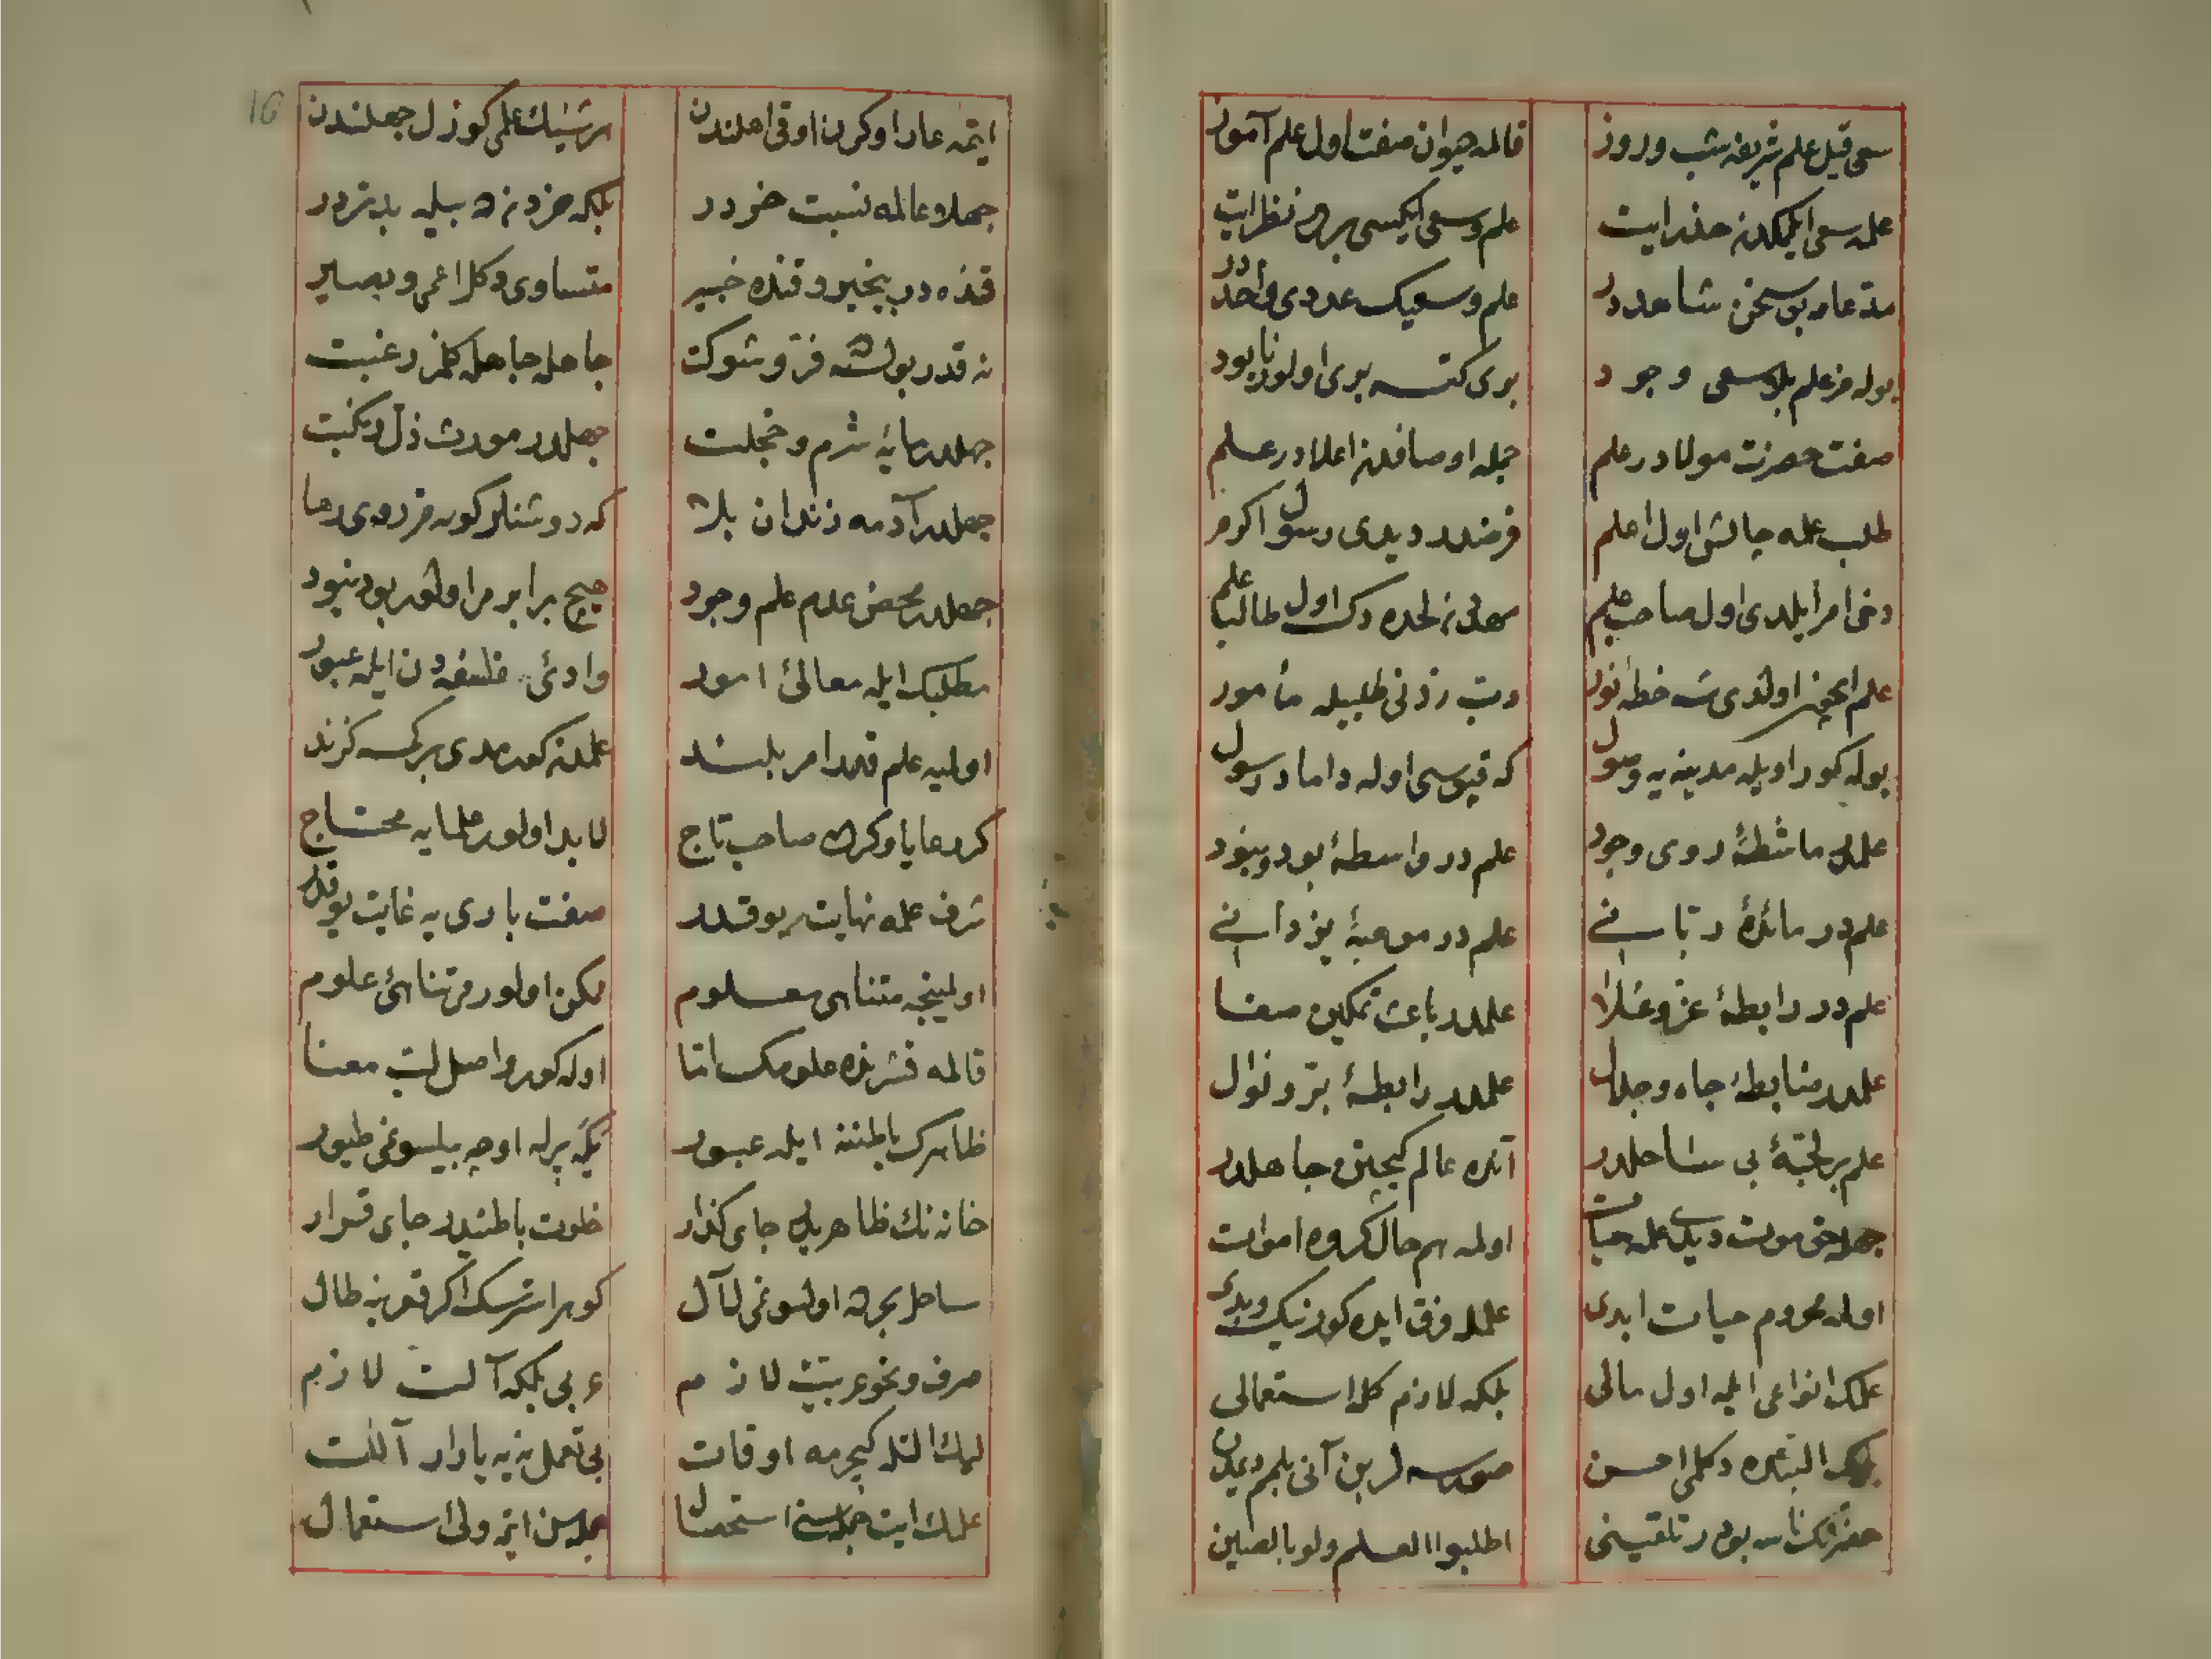 سعی قیل علم شریفه شب و روز قالمه حیوان صفت اول علم آموز
علمه سعی ایلمکدن حذر ایت علم و سعی ایکیسی بردر نظر ایت
مدعامه بو سخن شاهددر علم و سعیک عددی واحددر
بوله مز علم بلا سعی وجود بری کتسه بری اولور نابود
صفت حضرت مولادر علم جمله اوصافدن اعلادر علم
طلب علمه چالش اول اعلم فرضدر دیدی رسول اکرم
دخی امر ایلدی اول صاحب علم مهدنزلحده دک اول طالب علم
علم ایچون اولدی شه خطهٔ نور رب زدنی طلبیله مأمور
بوله کور اویله مدینه یه وصول که قپوسی اوله داماد رسول
علمدر ماشطهٔ روی وجود علمدر واسطهٔ بود و نبود
علمدر مائدهٔ ربانی علمدر موهبهٔ یزدانی
علمدر رابطهٔ عز و علا علمدر باعث تمکین صفا
علمدر ضابطهٔ جاه و جلال علمدر رابطهٔ بر و نوال
علم بر لجهٔ بی ساحلدر آنده عالم کچینن جاهلدر
جهله حق موت دیدی علمه حیات اولمه هم حال کروه اموات
اولمه محروم حیات ابدی علمله فرق ایده کور نیک و بدی
علمک انواعی ایله اول مالی بلکه لازم کله استعمالی
بلمک البتده دکلمی احسن صورسه لر بن آنی بلمم دیمدن
حضرتک ناسه بودر تلقینی اطلبوا العلم ولو بالصین
ایتمه عار اوکرن اوقی اهلندن هر شیئک علمی کوزل جهلندن
جهلا و عالمه نسبت خردر بلکه خردن ده بیله بدتردر
قنده در بیخبر و قنده خبیر متساوی دکل اعمی و بصیر
نه قدر بولسه فر و شوکت جاهله جاهل کلمز رغبت
جهلدر مایهٔ شرم و خجلت جهلدر مورث ذل و نکبت
جهلدر آدمه زندان بلا که دوشنلر کوره مز روی رها
جهلدر محض عدم علم وجود هیچ برابر می اولور بود نبود
مطلبک ایله معالئ امور وادئ فلسفه دن ایله عبور
اولیه علم قدر امر بلند علمدن کورمدی بر کسه کزند
کر رعایا و کرک صاحب تاج لابد اولور علمایه محتاج
شرف علمه نهایت یوقدر صفت باری یه غایت یوقدر
اولینجه متناهی معلوم ممکن اولورمی تناهئ علوم
قالمه قشرنده علومک اما اوله کور واصل لب معنا
ظاهرک باطننه ایله عبور
خانه نک ظاهریدر جای کذار خلوت باطنیدر جای قرار
ساحل بحرده اولسونمی لآل کوهر استرسک اکر قعرینه طال
صرف و نحو عربیت لازم عربی بلکه آلت لازم
لیک التله کچرمه اوقات بی تعمل نه یه یارار آلات
علمک ایت جمله سنی استحصال جمله سن ایتمه ولی استعمال